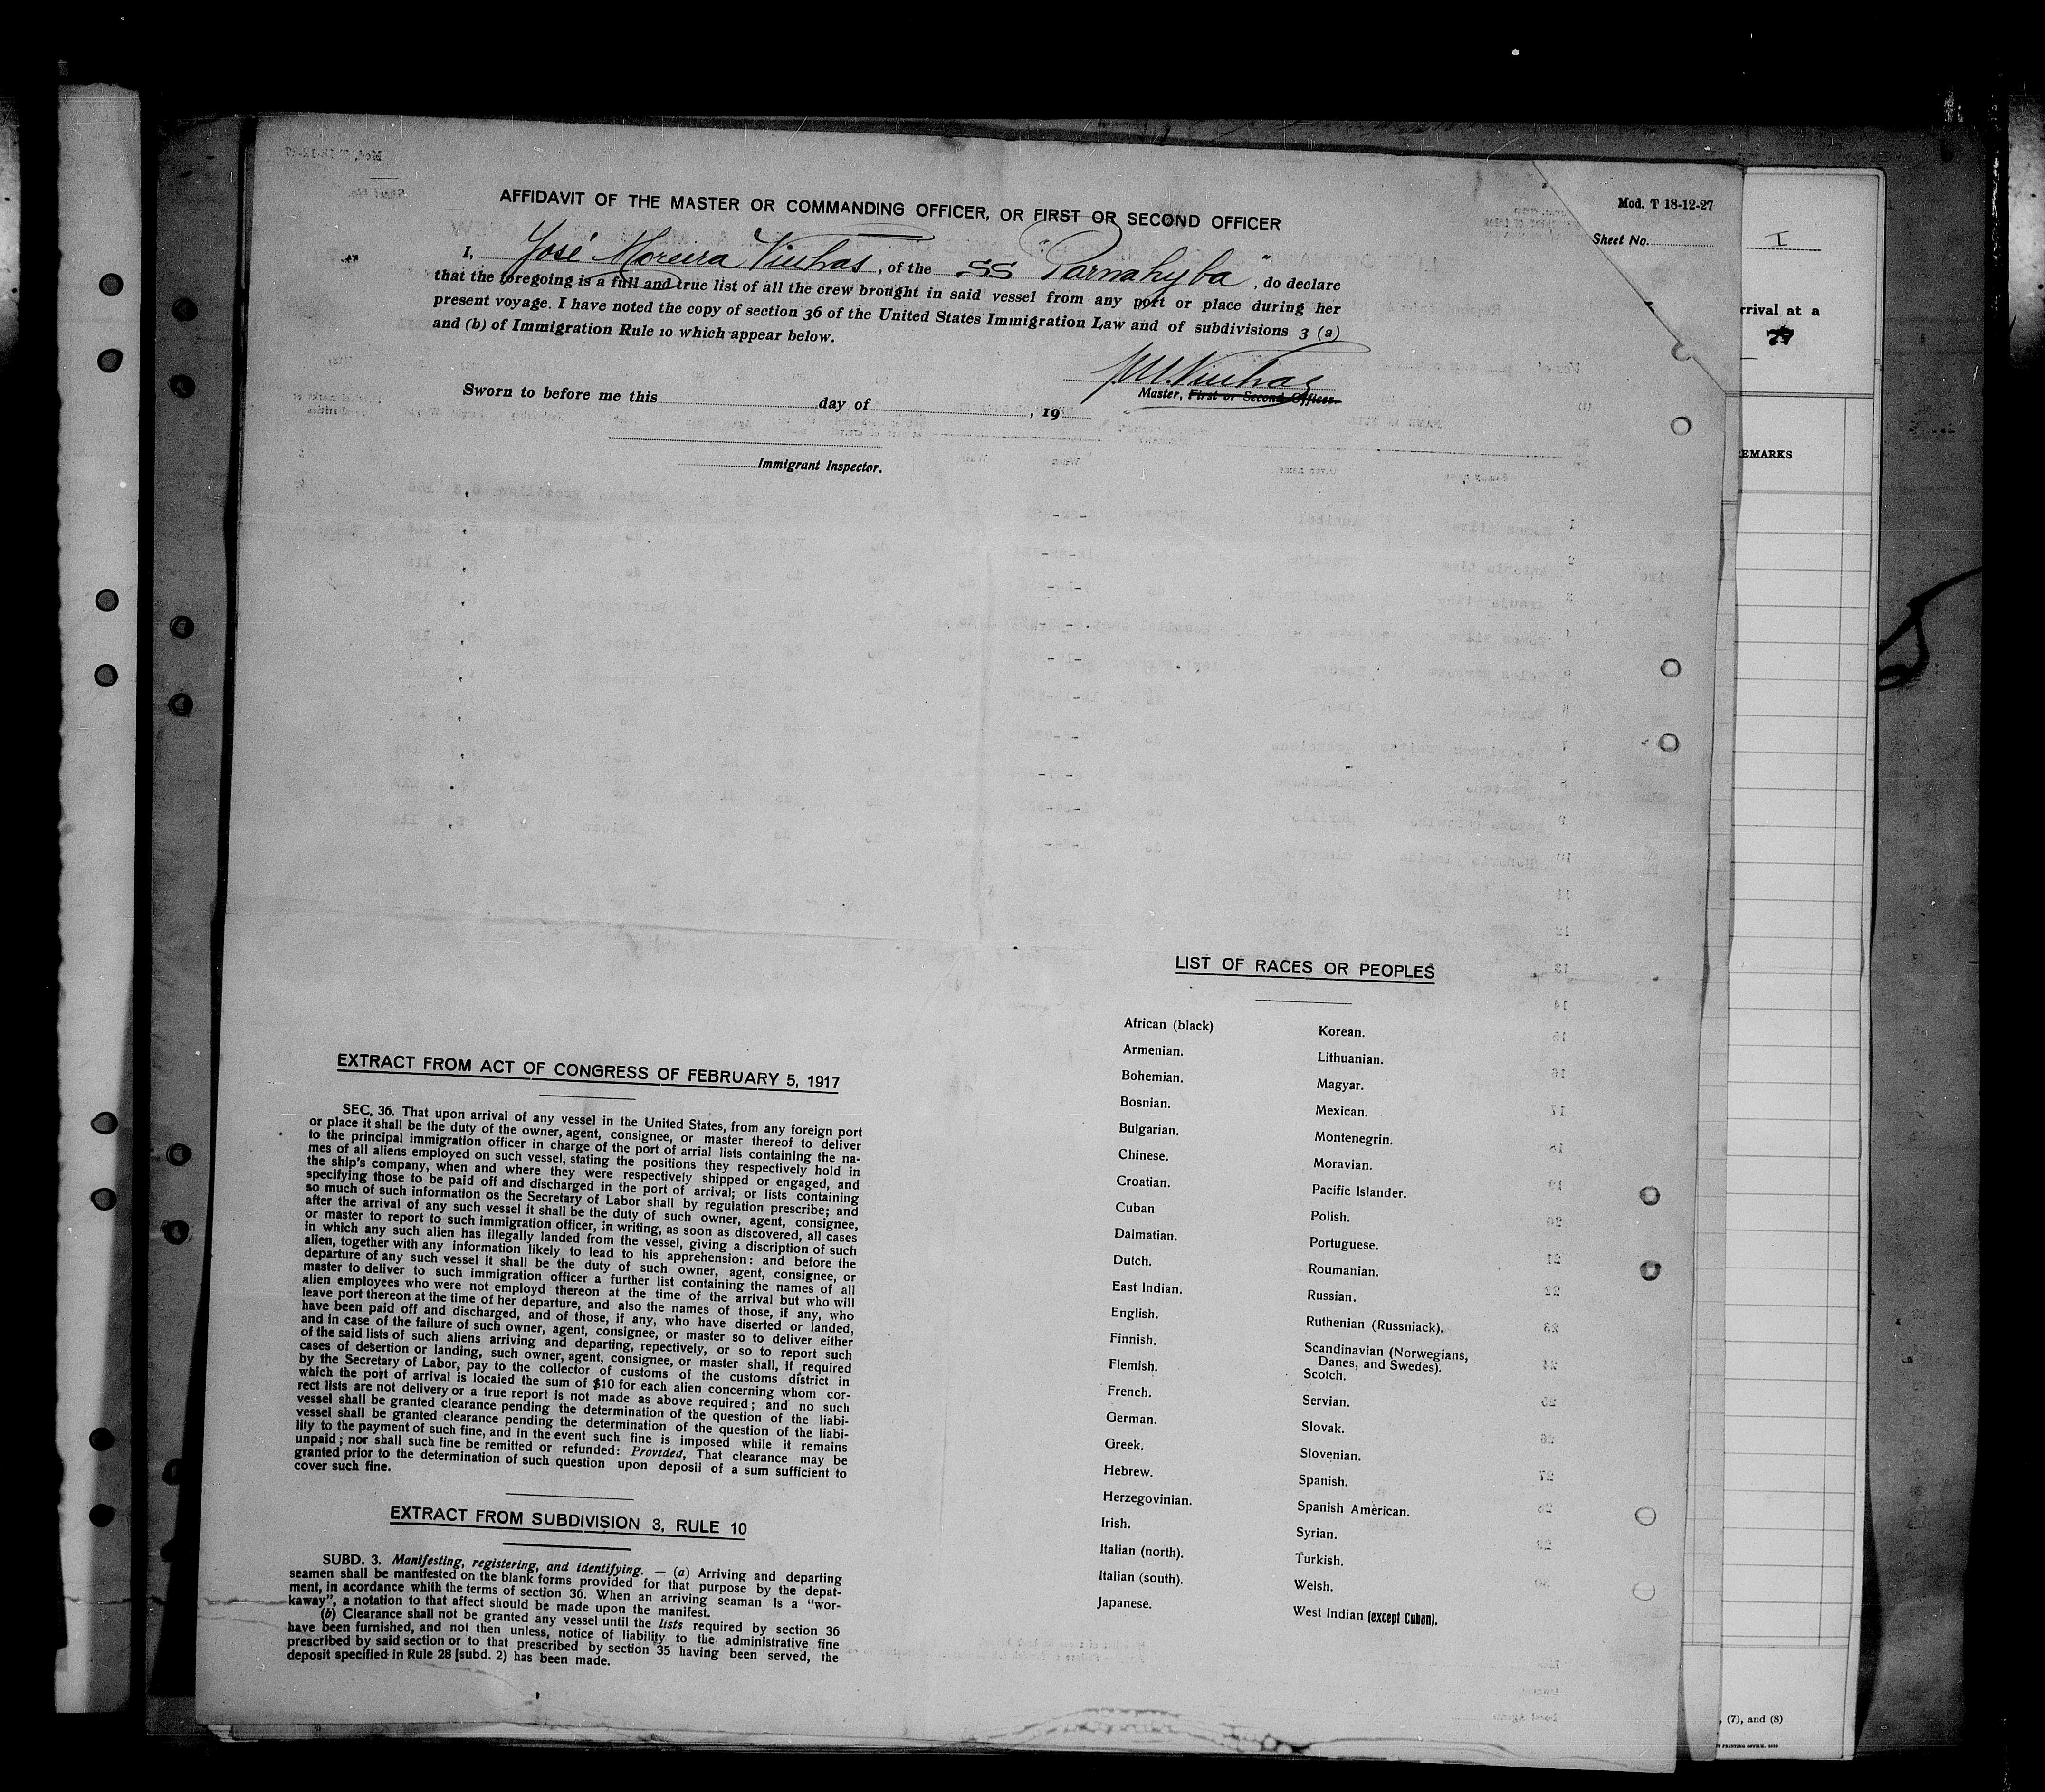 Mod. T 18-12-27
Sheet No.
AFFIDAVIT OF THE MASTER OR COMMANDING OFFICER, OR FIRST OR SECOND OFFICER
I, José Moreira Vinhas, of the SS "Parnahyba", do declare
that the foregoing is a full and true list of all the crew brought in said vessel from any port or place during her
present voyage. I have noted the copy of section 36 of the United States Immigration Law and of subdivisions 3 (a)
and (b) of Immigration Rule 10 which appear below.
J M Vinhas
Master, First or Second Officer.
Sworn to before me this day of , 19
Immigrant Inspector.
I
rrival at a
77
EMARKS
EXTRACT FROM ACT OF CONGRESS OF FEBRUARY 5, 1917
SEC. 36. That upon arrival of any vessel in the United States, from any foreign port
or place it shall be the duty of the owner, agent, consignee, or master thereof to deliver
to the principal immigration officer in charge of the port of arrial lists containing the na-
mes of all aliens employed on such vessel, stating the positions they respectively hold in
the ship's company, when and where they were respectively shipped or engaged, and
specifying those to be paid off and discharged in the port of arrival; or lists containing
so much of such information os the Secretary of Labor shall by regulation prescribe; and
after the arrival of any such vessel it shall be the duty of such owner, agent, consignee,
or master to report to such immigration officer, in writing, as soon as discovered, all cases
in which any such alien has illegally landed from the vessel, giving a discription of such
alien, together with any information likely to lead to his apprehension: and before the
departure of any such vessel it shall be the duty of such owner, agent, consignee, or
master to deliver to such immigration officer a further list containing the names of all
alien employees who were not employd thereon at the time of the arrival but who will
leave port thereon at the time of her departure, and also the names of those, if any, who
have been paid off and discharged, and of those, if any, who have diserted or landed,
and in case of the failure of such owner, agent, consignee, or master so to deliver either
of the said lists of such aliens arriving and departing, repectively, or so to report such
cases of desertion or landing, such owner, agent, consignee, or master shall, if required
by the Secretary of Labor, pay to the collector of customs of the customs district in
which the port of arrival is locaied the sum of $10 for each alien concerning whom cor-
rect lists are not delivery or a true report is not made as above required; and no such
vessel shall be granted clearance pending the determination of the question of the liabi-
vessel shall be granted clearance pending the determination of the question of the liabi-
lity to the payment of such fine, and in the event such fine is imposed while it remains
unpaid; nor shall such fine be remitted or refunded: Provided, That clearance may be
granted prior to the determination of such question upon deposii of a sum sufficient to
cover such fine.
EXTRACT FROM SUBDIVISION 3, RULE 10
SUBD. 3. Manifesting, registering, and identifying. — (a) Arriving and departing
seamen shall be mantfested on the blank forms provided for that purpose by the depat-
ment, in acordance whith the terms of section 36. When an arriving seaman is a "wor-
kaway", a notation to that affect should be made upon the manifest.
(b) Clearance shall not be granted any vessel until the lists required by section 36
have been furnished, and not then unless, notice of liability to the administrative fine
prescribed by said section or to that prescribed by section 35 having been served, the
deposit specified in Rule 28 [subd. 2) has been made.
LIST OF RACES OR PEOPLES
African (black)
Armenian.
Bohemian.
Bosnian.
Bulgarian.
Chinese.
Croatian.
Cuban
Dalmatian.
Dutch.
East Indian.
English.
Finnish.
Flemish.
French.
German.
Greek.
Hebrew.
Herzegovinian.
Irish.
Italian (north).
Italian (south).
Japanese.
Korean.
Lithuanian.
Magyar.
Mexican.
Montenegrin.
Moravian.
Pacific Islander.
Polish.
Portuguese.
Roumanian.
Russian.
Ruthenian (Russniack).
Scandinavian (Norwegians,
Danes, and Swedes).
Scotch.
Servian.
Slovak.
Slovenian.
Spanish.
Spanish American.
Syrian.
Turkish.
Welsh.
West Indian (except Cuban).
, (7), and (8)